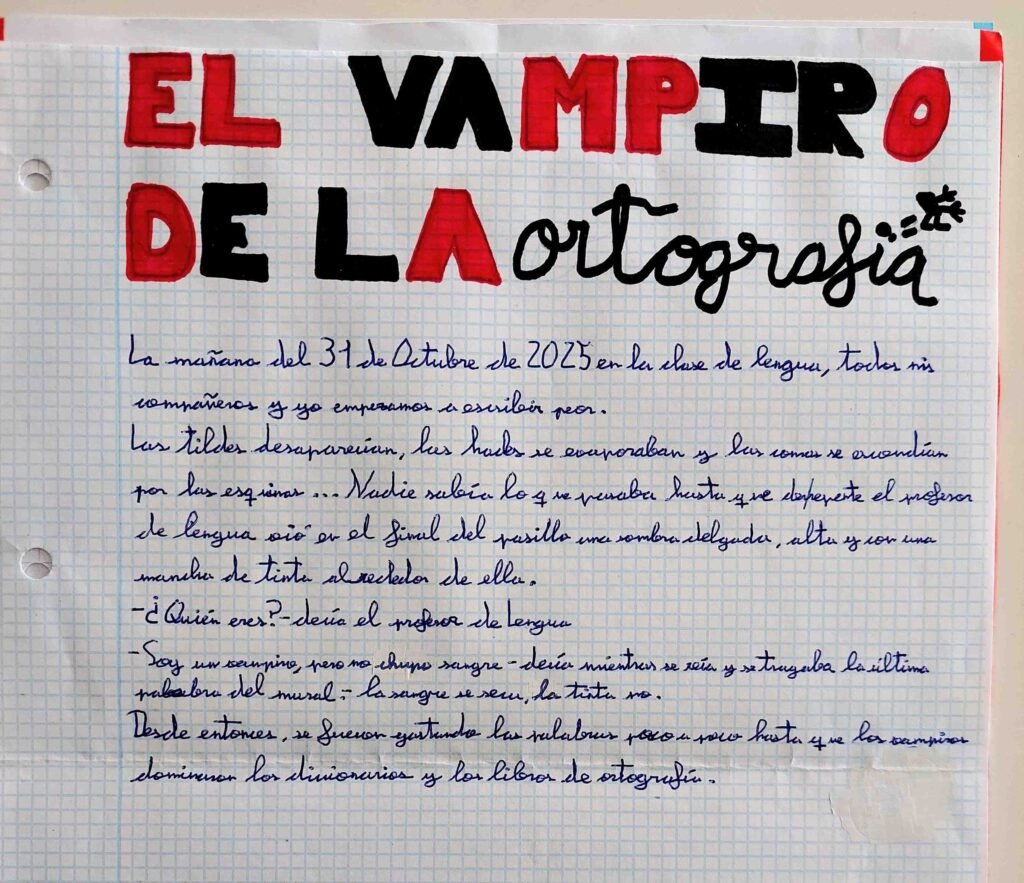 EL VAMPIRO
DE LA ortografía
La mañana del 31 de Octubre de 2025 en la clase de lengua, todos mis
compañeros y yo empezamos a escribir peor.
Las tildes desaparecían, las haches se evaporaban y las comas se escondían
por las esquinas ... Nadie sabía lo que pasaba hasta que de repente el profesor
de lengua vió en el final del pasillo una sombra delgada, alta y con una
mancha de tinta alrededor de ella.
-¿Quién eres?-decía el profesor de Lengua
-Soy un vampiro, pero no chupo sangre - decía mientras se reía y se tragaba la última
palabra del mural - la sangre se seca, la tinta no.
Desde entonces, se fueron gastando las palabras poco a poco hasta que los vampiros
dominaron los diccionarios y los libros de ortografía.